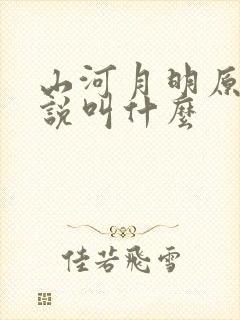 山河月明原
說叫什麼
佳若飛雪